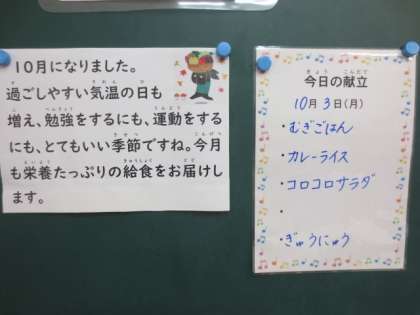 10月になりました。
過ごしやすい気温の日も
増え、勉強をするにも、運動をする
にも、とてもいい季節ですね。今月
も栄養たっぷりの給食をお届けし
ます。
今日の献立
10月3日(月)
・むぎごはん
・カレーライス
・コロコロサラダ
・
・ぎゅうにゅう